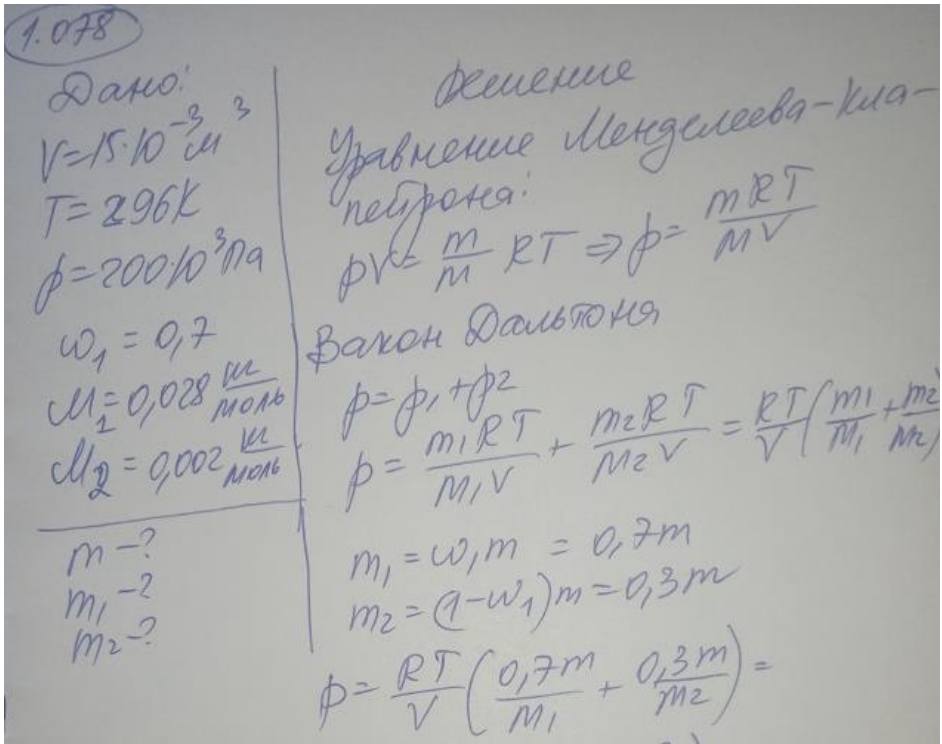 1.078
Дано:
V=15·10⁻³м³
T=296К
p=200·10³Па
ω₁ = 0,7
M₁=0,028 кг/моль
M₂=0,002 кг/моль
m-?
m₁-?
m₂-?
Решение
Уравнение Менделеева-Кла-
пейрона:
pV= m/M RT ⇒ p= mRT/MV
Закон Дальтона
p=p₁+p₂
p= m₁RT/M₁V + m₂RT/M₂V = RT/V (m₁/M₁ + m₂/M₂)
m₁=ω₁m = 0,7m
m₂=(1-ω₁)m=0,3m
p= RT/V (0,7m/M₁ + 0,3m/M₂) =